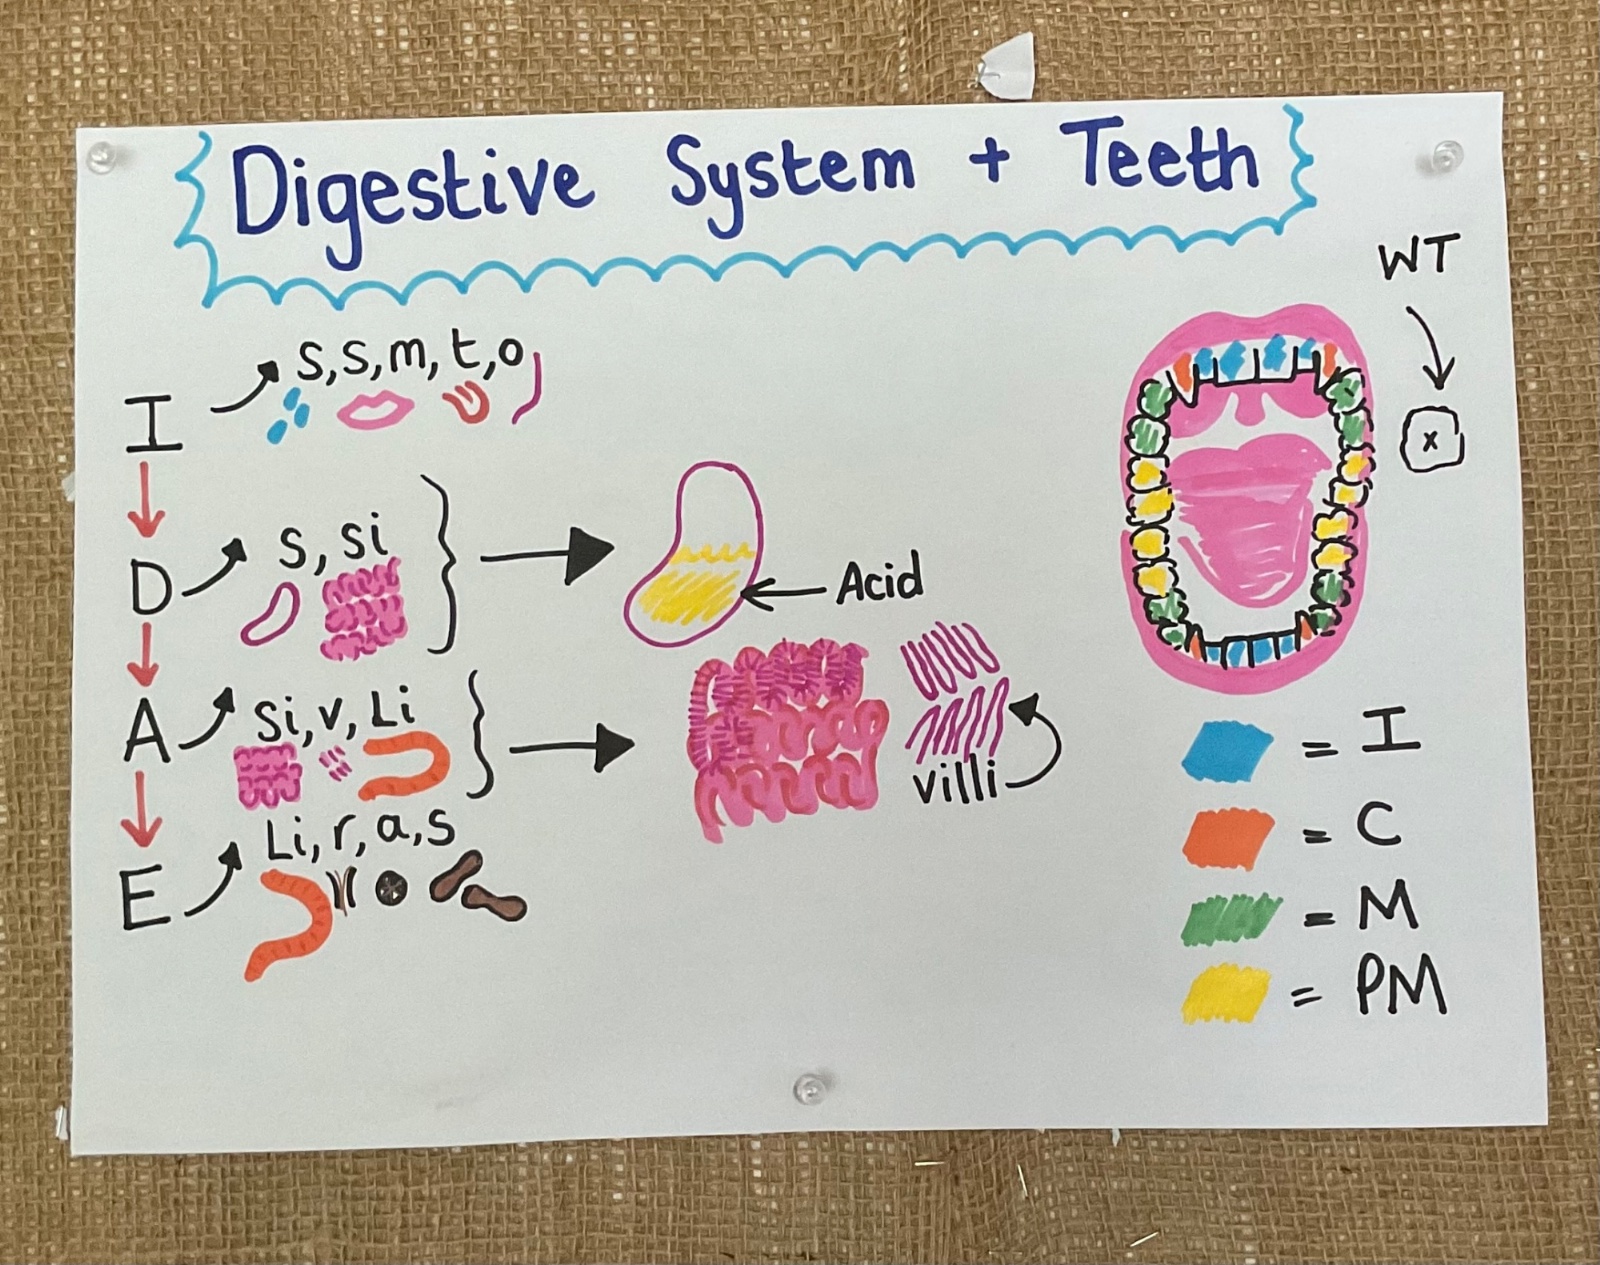 Digestive System + Teeth
WT
x
I
s, s, m, t, o
D
s, si
Acid
A
Si, v, Li
villi
E
Li, r, a, s
= I
= C
= M
= PM